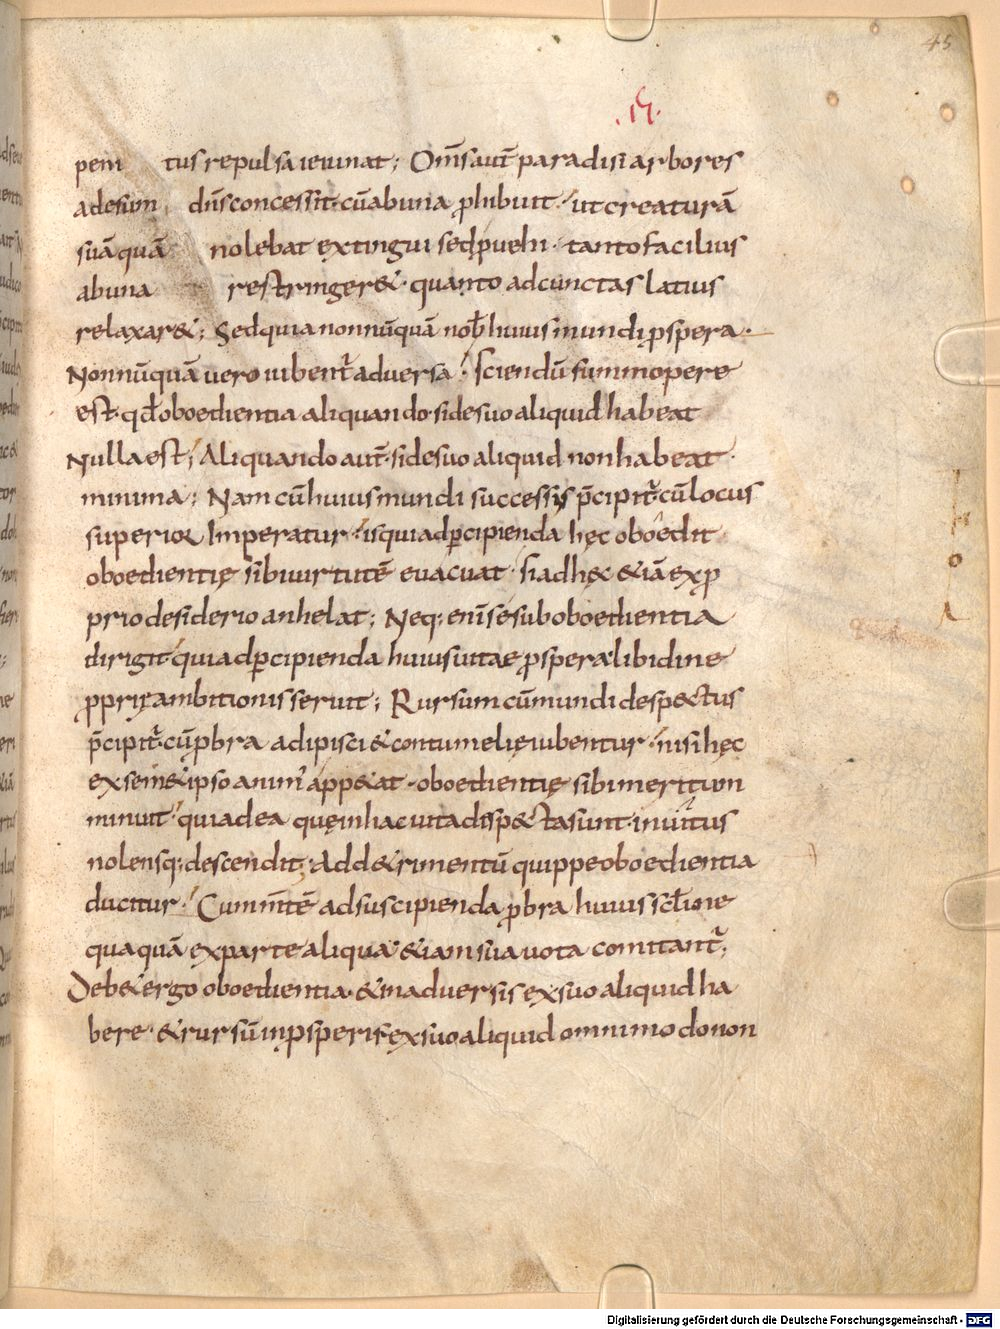 45
peni tus repulsa ieiunat; Om̄s aut̄ paradisi arbores
adesum dn̄s concessit· cū ab una ꝓhibuit· ut creaturā
suā quā nolebat extingui sed ꝓuehi· tanto facilius
ab una restringer&· quanto ad cunctas latius
relaxar&; Sed quia nonnūquā nob̄ huius mundi ꝓspera·
Nonnūquā uero iubent̄ aduersa· Sciendū summopere
est· qđ oboedientia aliquando· si de suo aliquid habeat
Nulla est; Aliquando aut̄· si de suo aliquid non habeat·
minima; Nam cū huius mundi successus p̄cipit̄· cū locus
superior Imperatur· is qui ad ꝑcipienda hęc oboedit·
oboedientię sibi uirtutē euacuat· si ad hęc &iā ex ꝓ
prio desiderio anhelat; Neq; enī se sub oboedientia
dirigit· qui ad ꝑcipienda huius uitae ꝓspera libidine
ꝓprię ambitionis seruit; Rursum cū mundi despectus
p̄cipit̄· cū ꝓbra adipisci & contumelię iubentur· nisi hęc
ex sem&ipso animus app&at· oboedientię sibi meritum
minuit· quia d ea quę in hac uita despecta sunt· inuitus
nolensq; descendit; Ad d&rimentū quippe oboedientia
ducitur· Cum m̄tē ad suscipienda ꝓbra huius sc̄li one
quaquā ex parte aliqua &iam sua uota comitant̄;
Deb& ergo oboedientia· & in aduersis ex suo aliquid ha
bere· & rursū in ꝓsperis ex suo aliquid omnimodo non
Digitalisierung gefördert durch die Deutsche Forschungsgemeinschaft - DFG